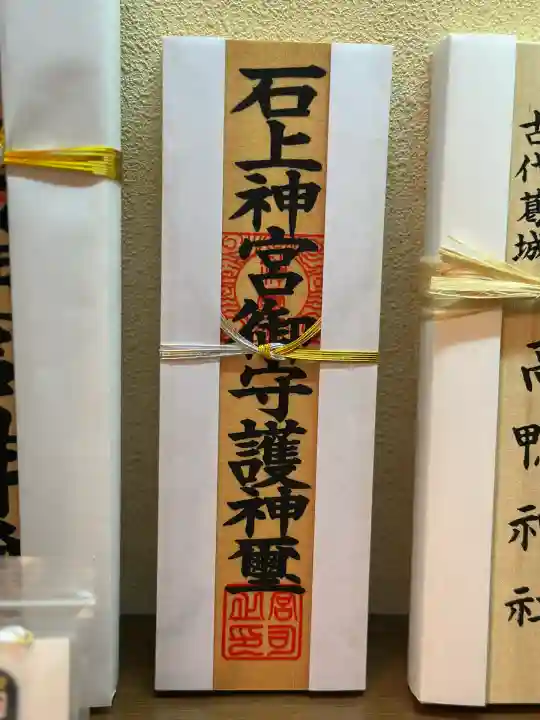 石上神宮御守護神璽
宮司之印
古代葛城
高鴨神社